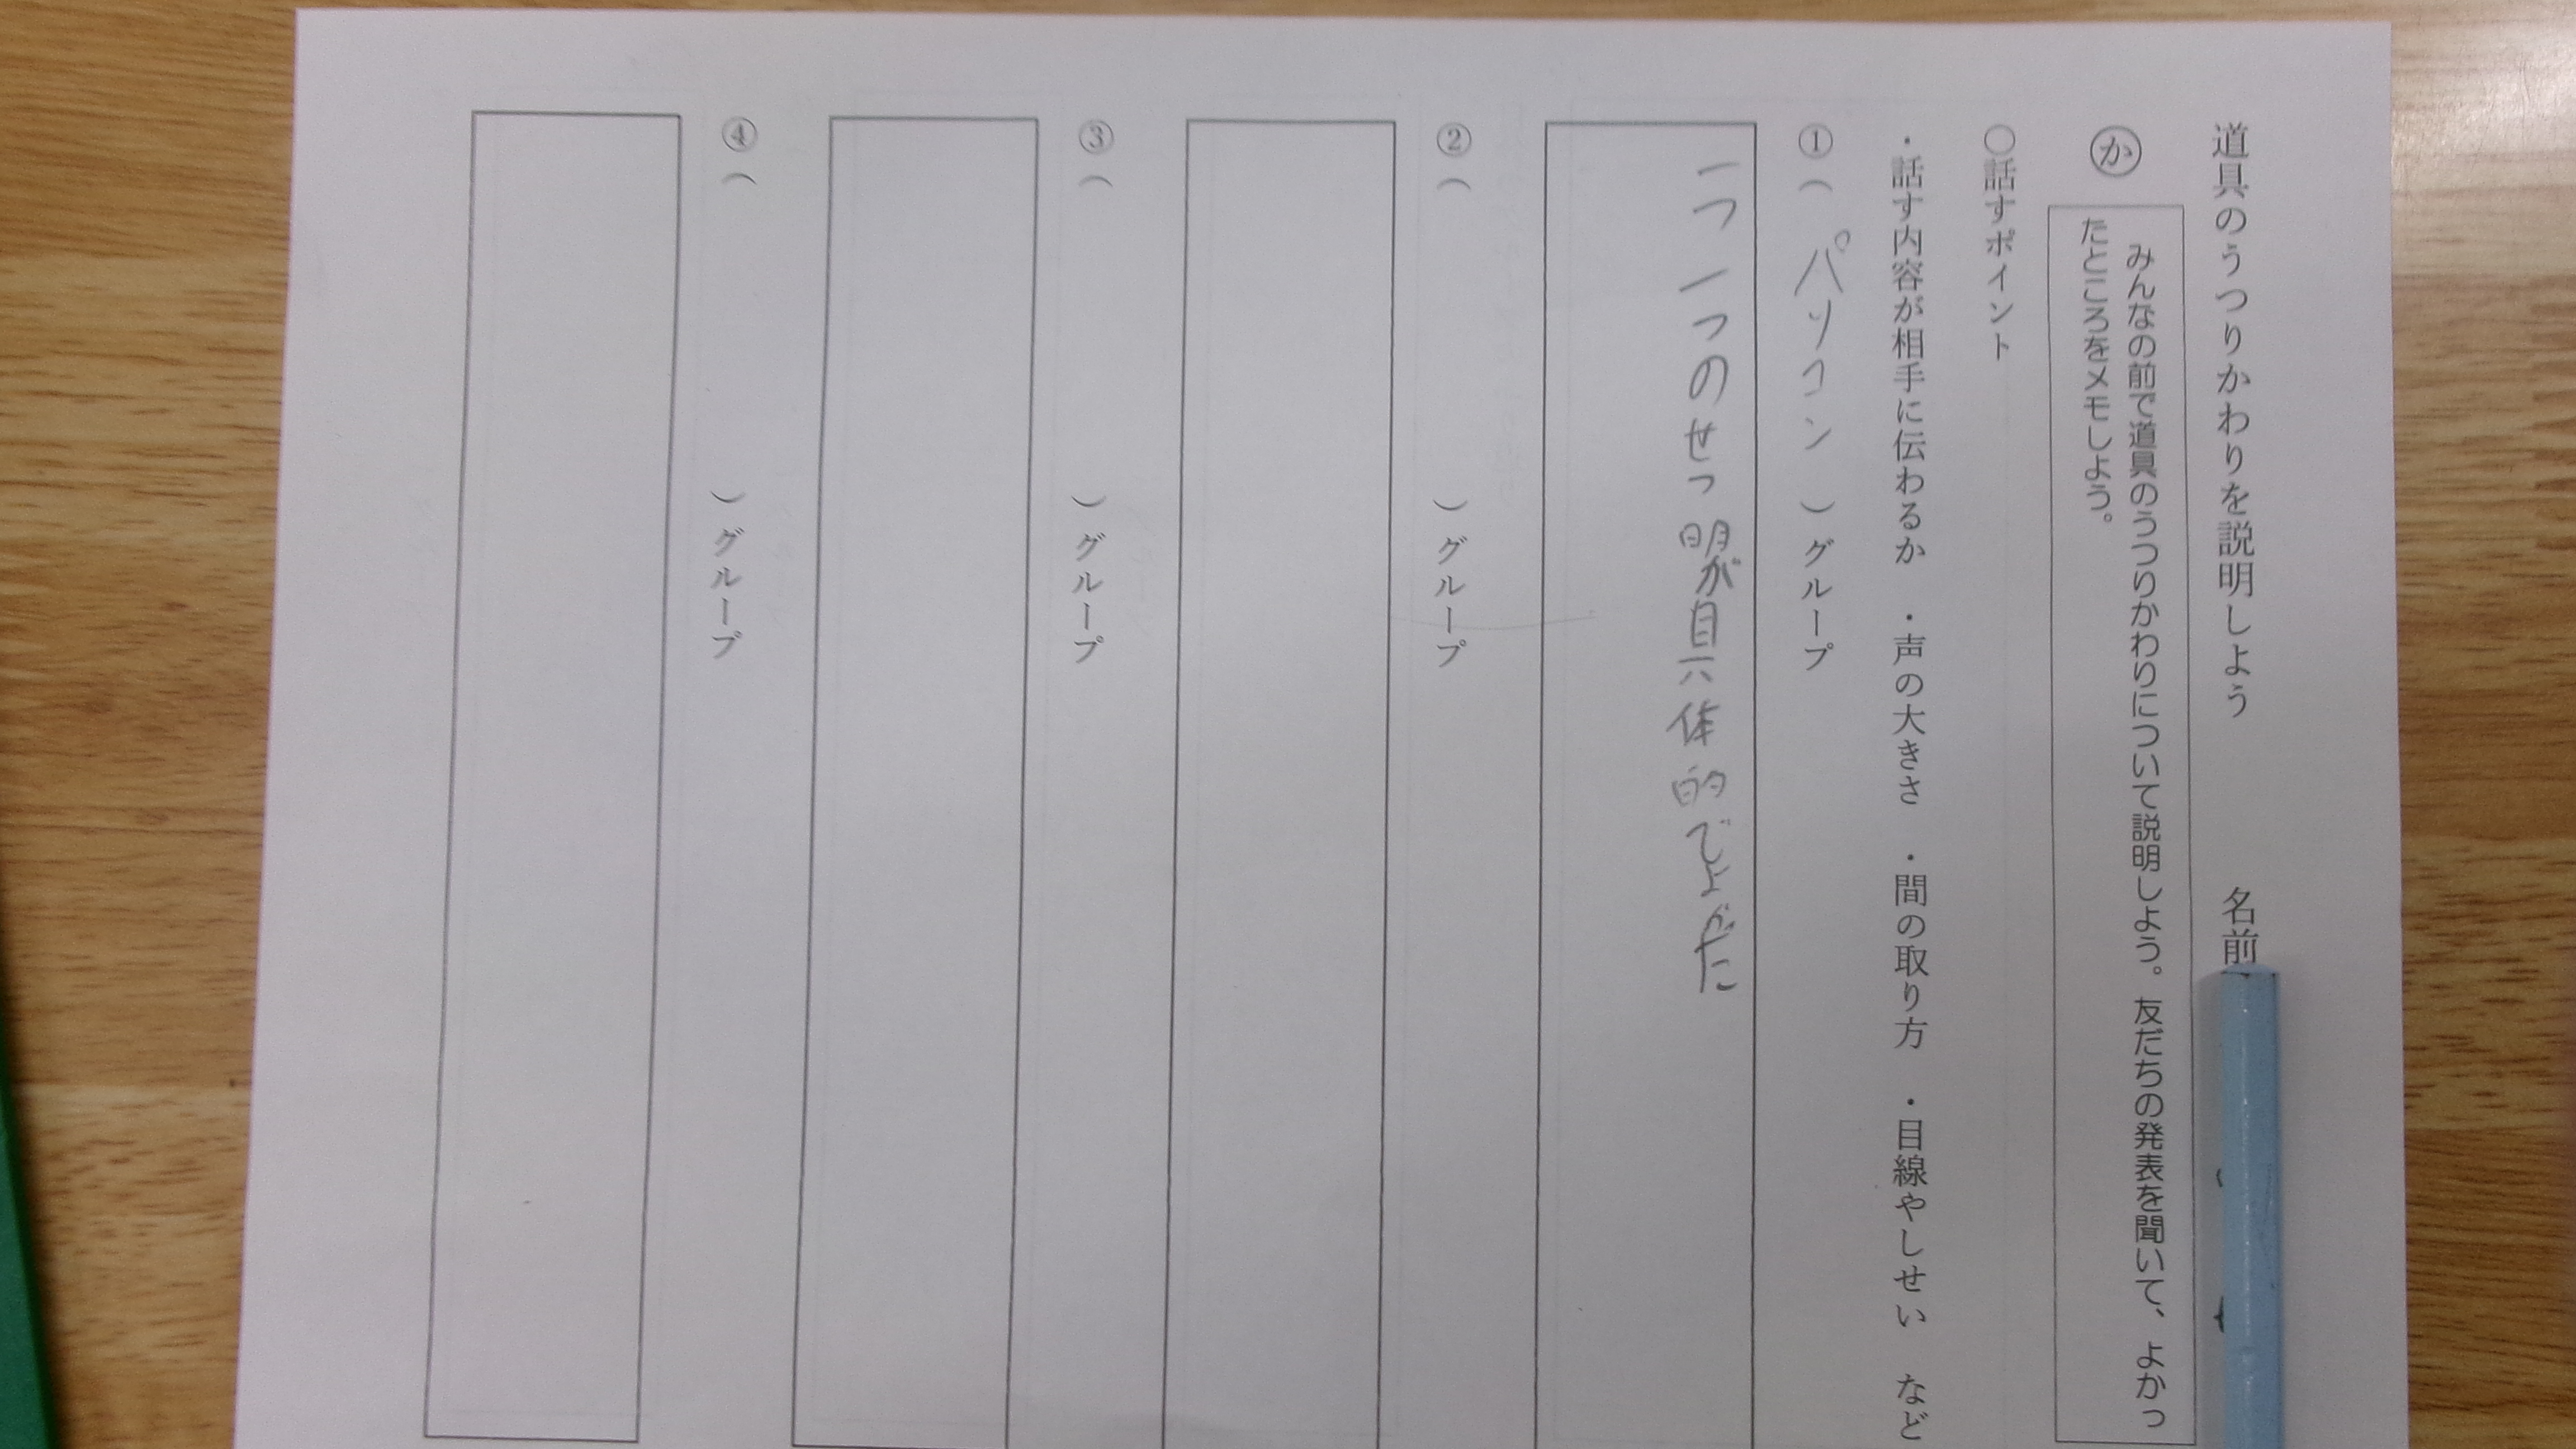 道具のうつりかわりを説明しよう　名前
か
みんなの前で道具のうつりかわりについて説明しよう。友だちの発表を聞いて、よかっ
たところをメモしよう。
〇話すポイント
・話す内容が相手に伝わるか　・声の大きさ　・間の取り方　・目線やしせい　など
①（　パソコン　）グループ
一つ一つのせつ明が具体的でよかった
②（　　　）グループ
③（　　　）グループ
④（　　　）グループ